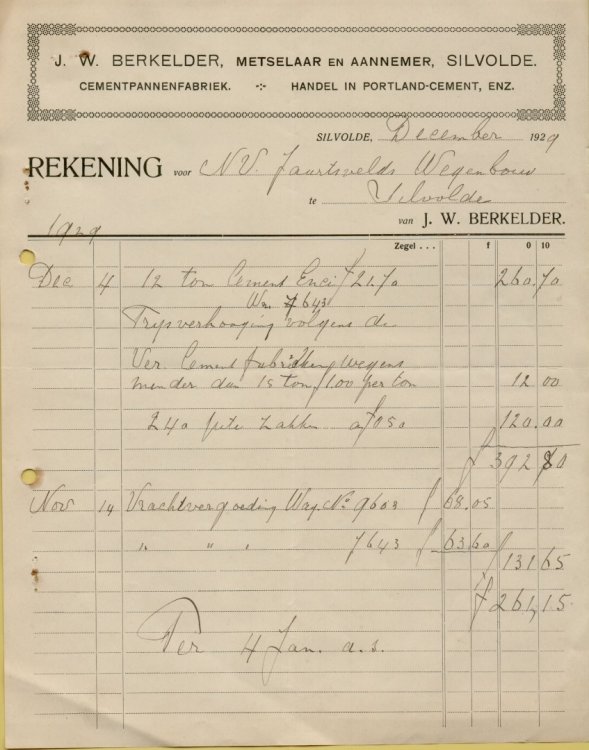 J. W. BERKELDER, METSELAAR EN AANNEMER, SILVOLDE.
CEMENTPANNENFABRIEK. HANDEL IN PORTLAND-CEMENT, ENZ.
SILVOLDE, December 1929
REKENING voor N.V. Wegenbouw
te Silvolde
van J. W. BERKELDER.
1929
Zegel . . . f 0 10
Dec 4 12 ton Cement Enci f 21.70 260.70
Wag 7643
Prijsverhooging volgens de
Ver. Cement wegens
minder dan 15 ton f 1.00 per ton 12 00
240 jute zakken a f 0.50 120.00
f 392 80
Nov 14 Vrachtvergoeding Wag. No 9603 f 68.05
" " " 7643 f 63.60 f 131 65
f 261,15
Per 4 Jan. a.s.